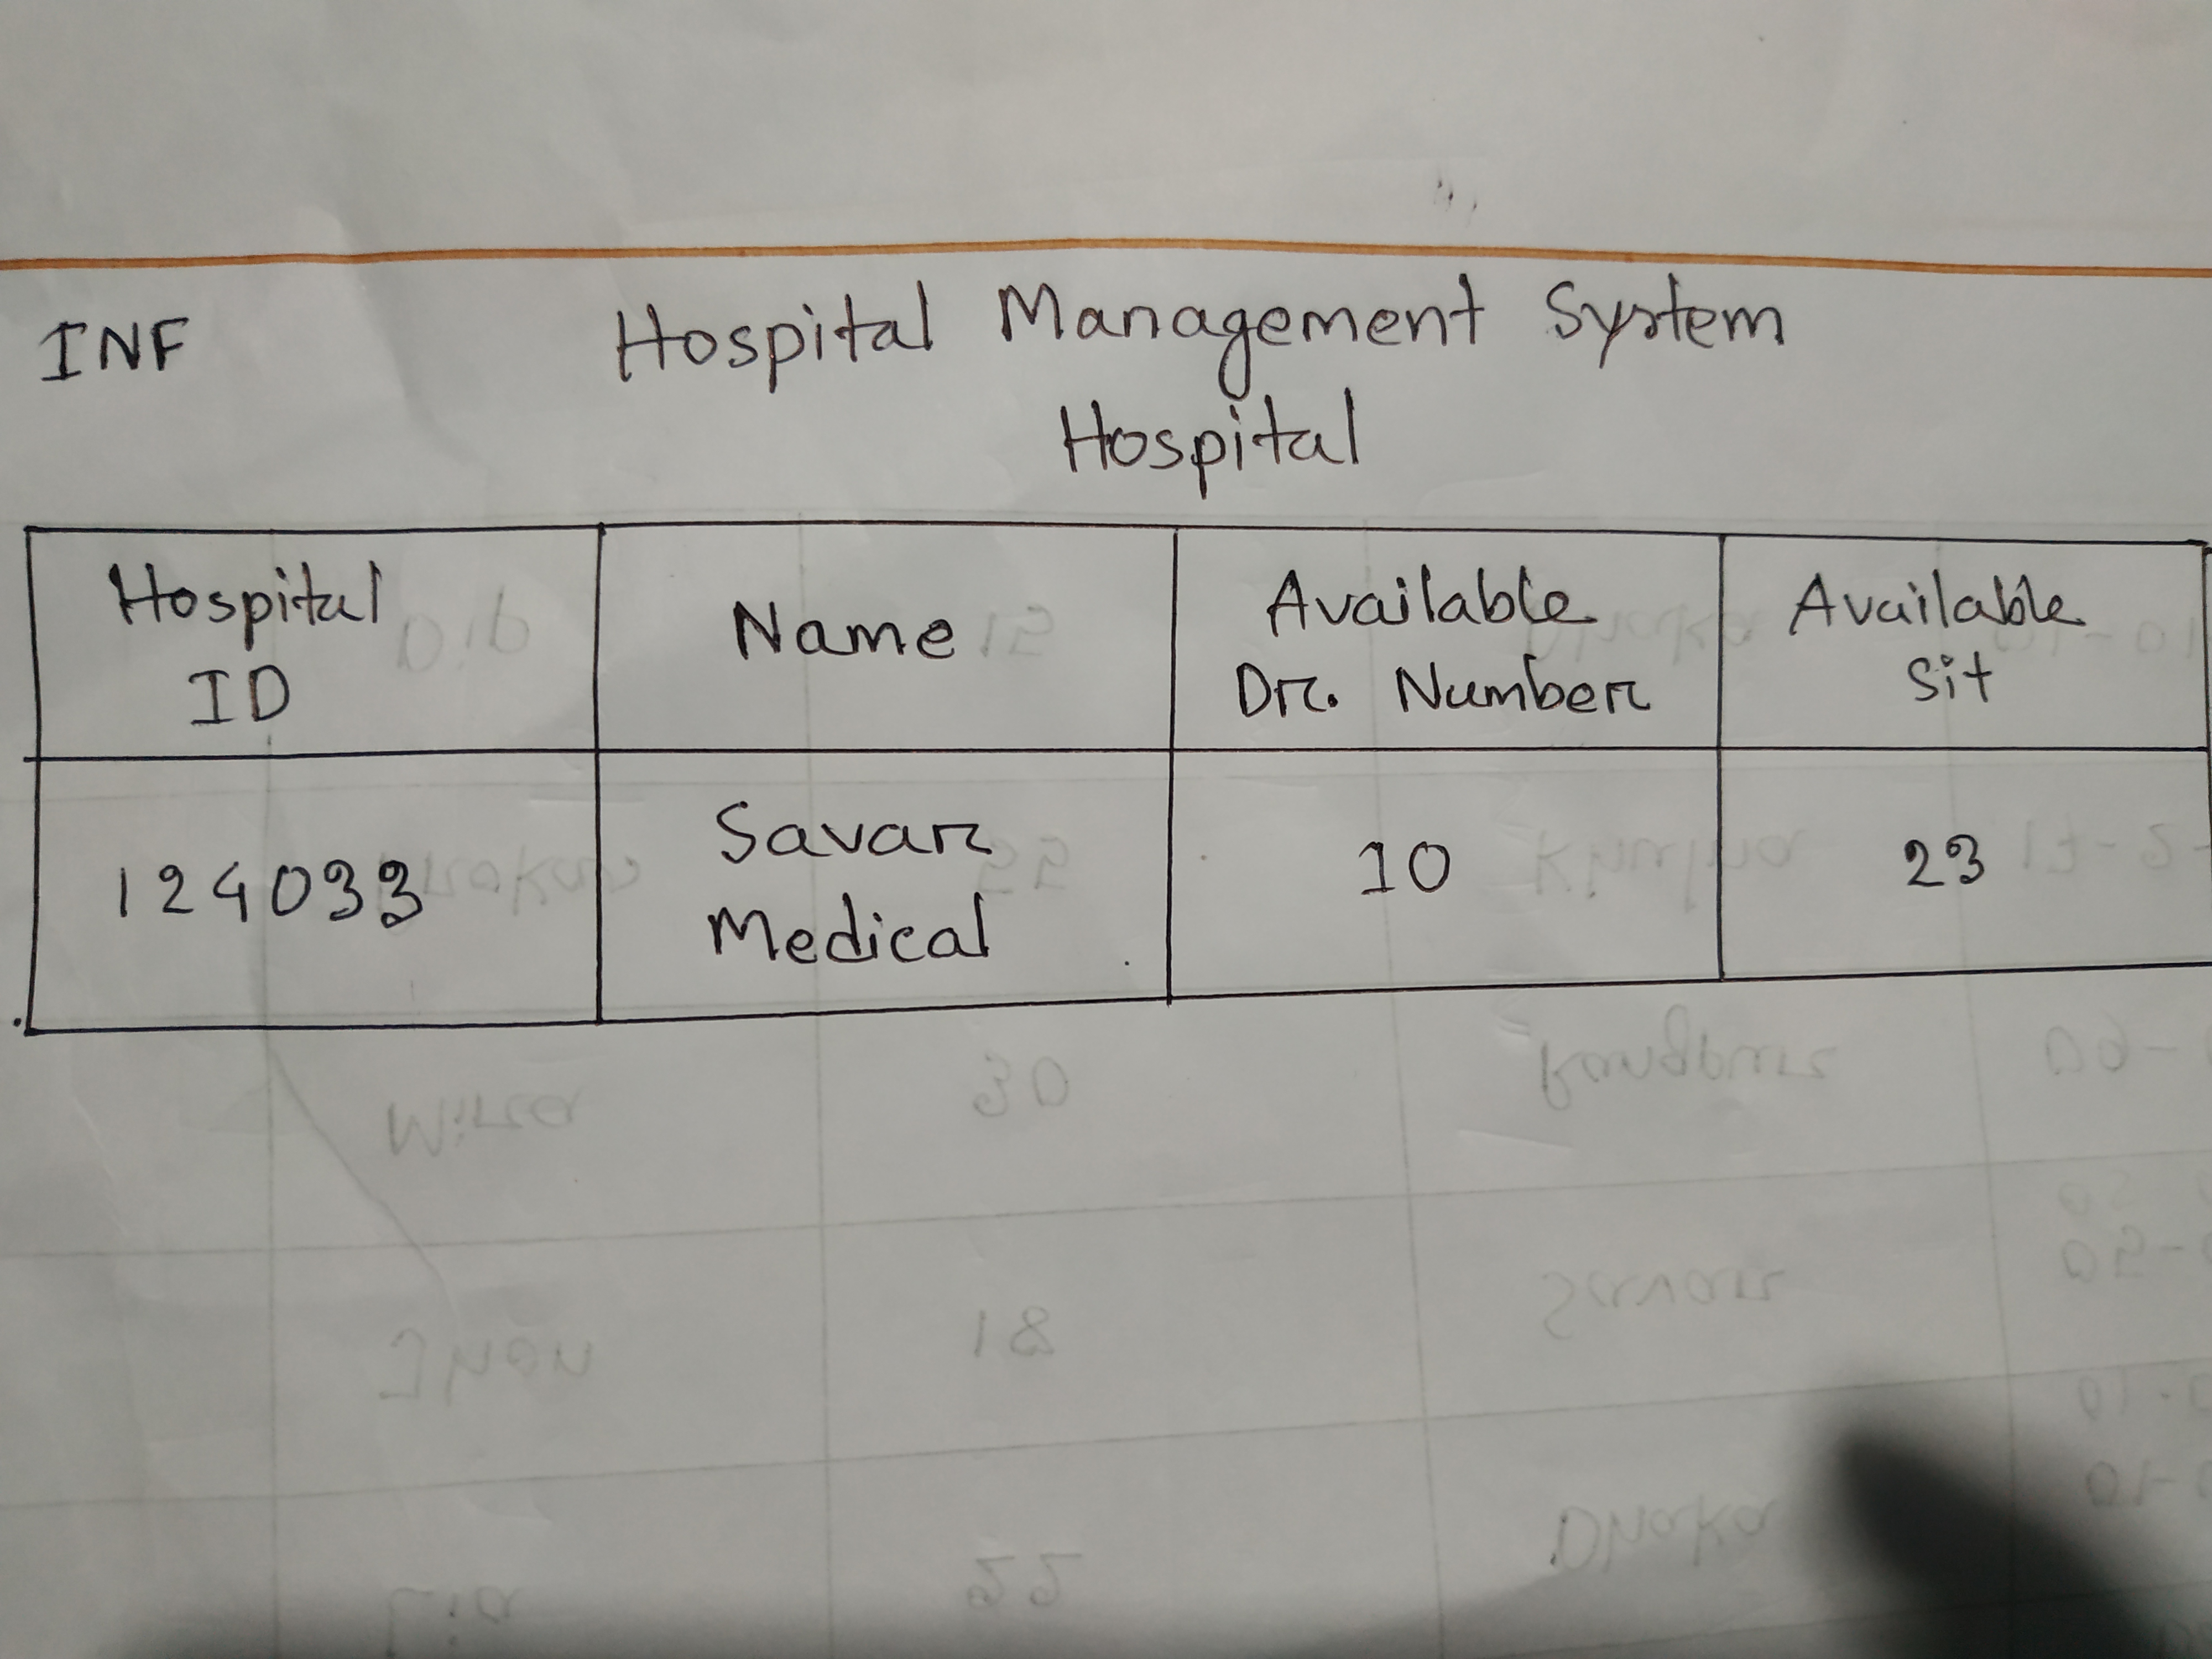 INF Hospital Management System
Hospital
Hospital ID Name Available Dr. Number Available Sit
124033 Savar Medical 10 23